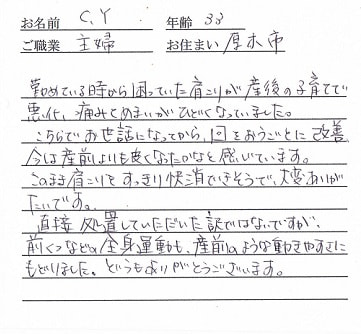 お名前 C,Y 年齢 33
ご職業 主婦 お住まい 厚木市
勤めている時から困っていた肩こりが産後の子育てで
悪化、痛みとめまいがひどくなっていました。
こちらでお世話になってから、回をおうごとに改善
今は産前よりも良くなたかなと感じています。
このまま肩こりもすっきり快消できそうで、大変ありが
たいです。
直接処置していただいた訳ではないですが、
前くつなどの全身運動も、産前のような動きやすさに
もどりました。どうもありがとうございます。